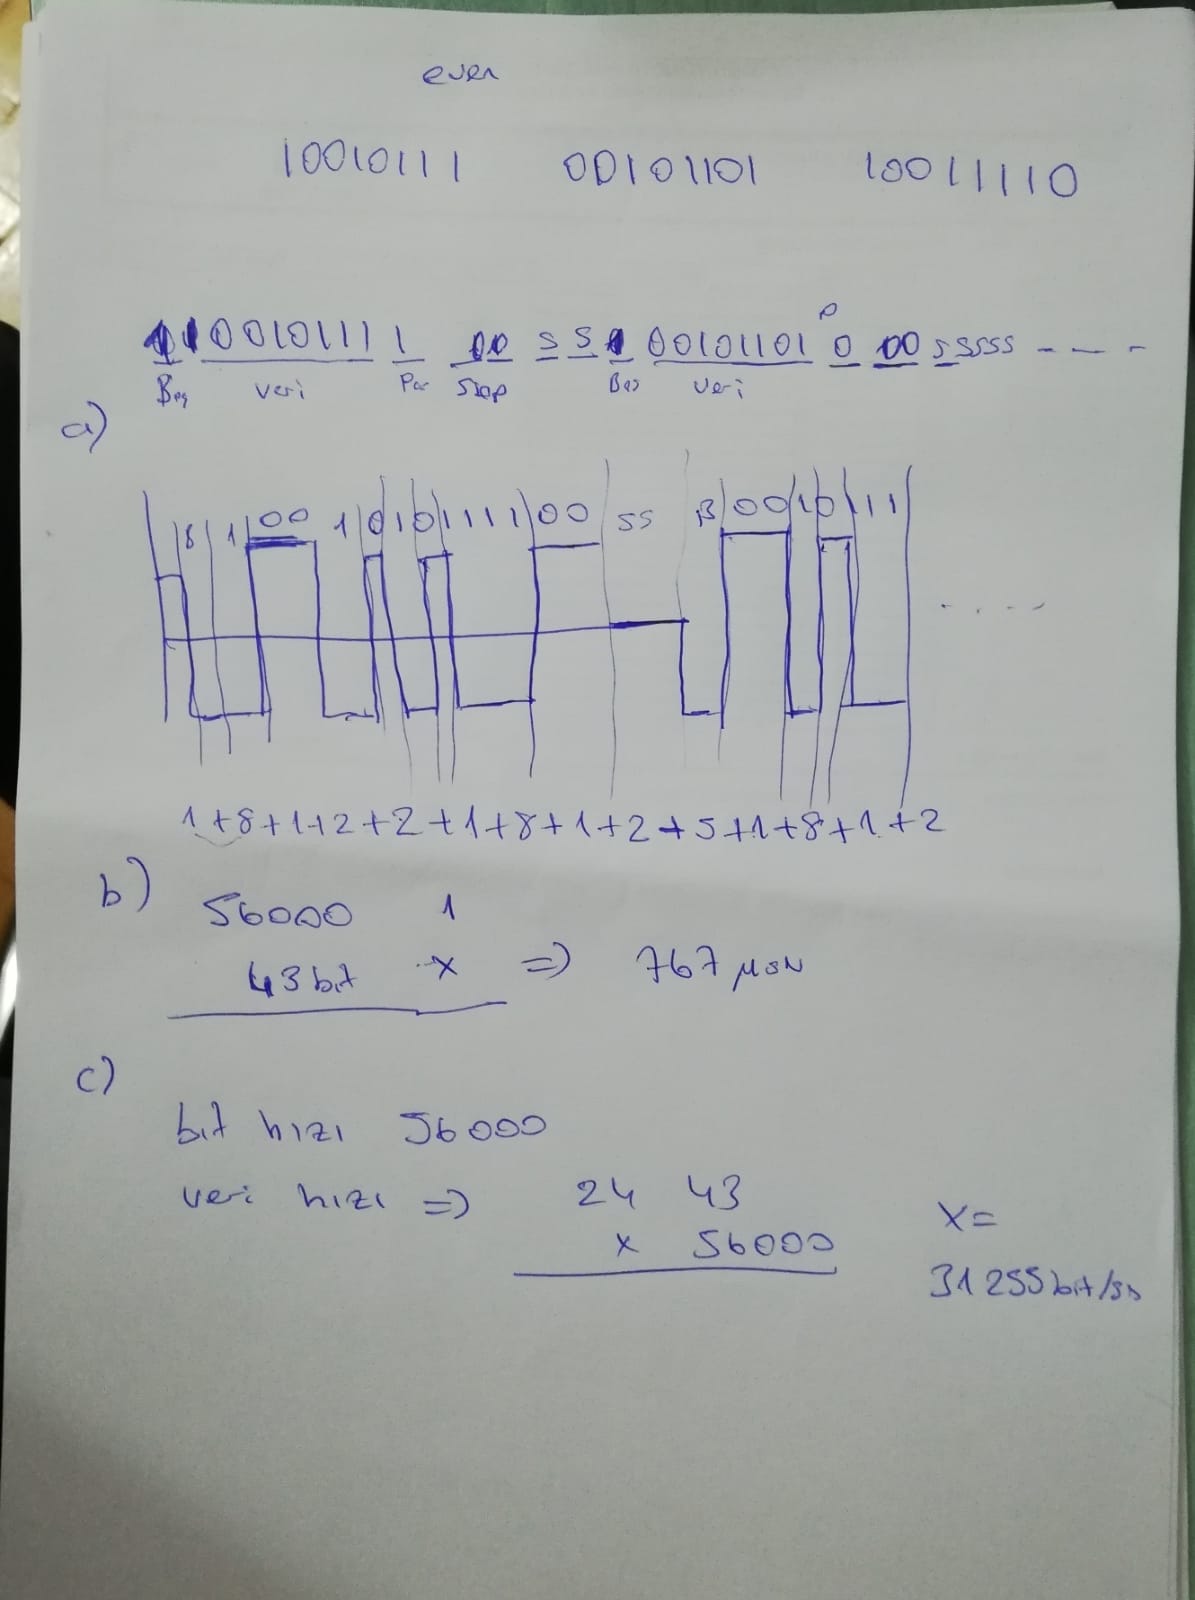 even
10010111 00101101 10011110
10010111 1 00 S S 00101101 0 00 SSSSS - - - -
Baş veri Par Stop Baş veri
a)
B 1 00 1 0 1 0 1 1 1 1 00 SS B 00 1 0 11
. . . .
1+8+1+2+2+1+8+1+2+5+1+8+1+2
b)
56000 1
43 bit x => 767 µsn
c)
bit hızı 56000
veri hızı => 24 43
x 56000
x=
31255 bit/sn